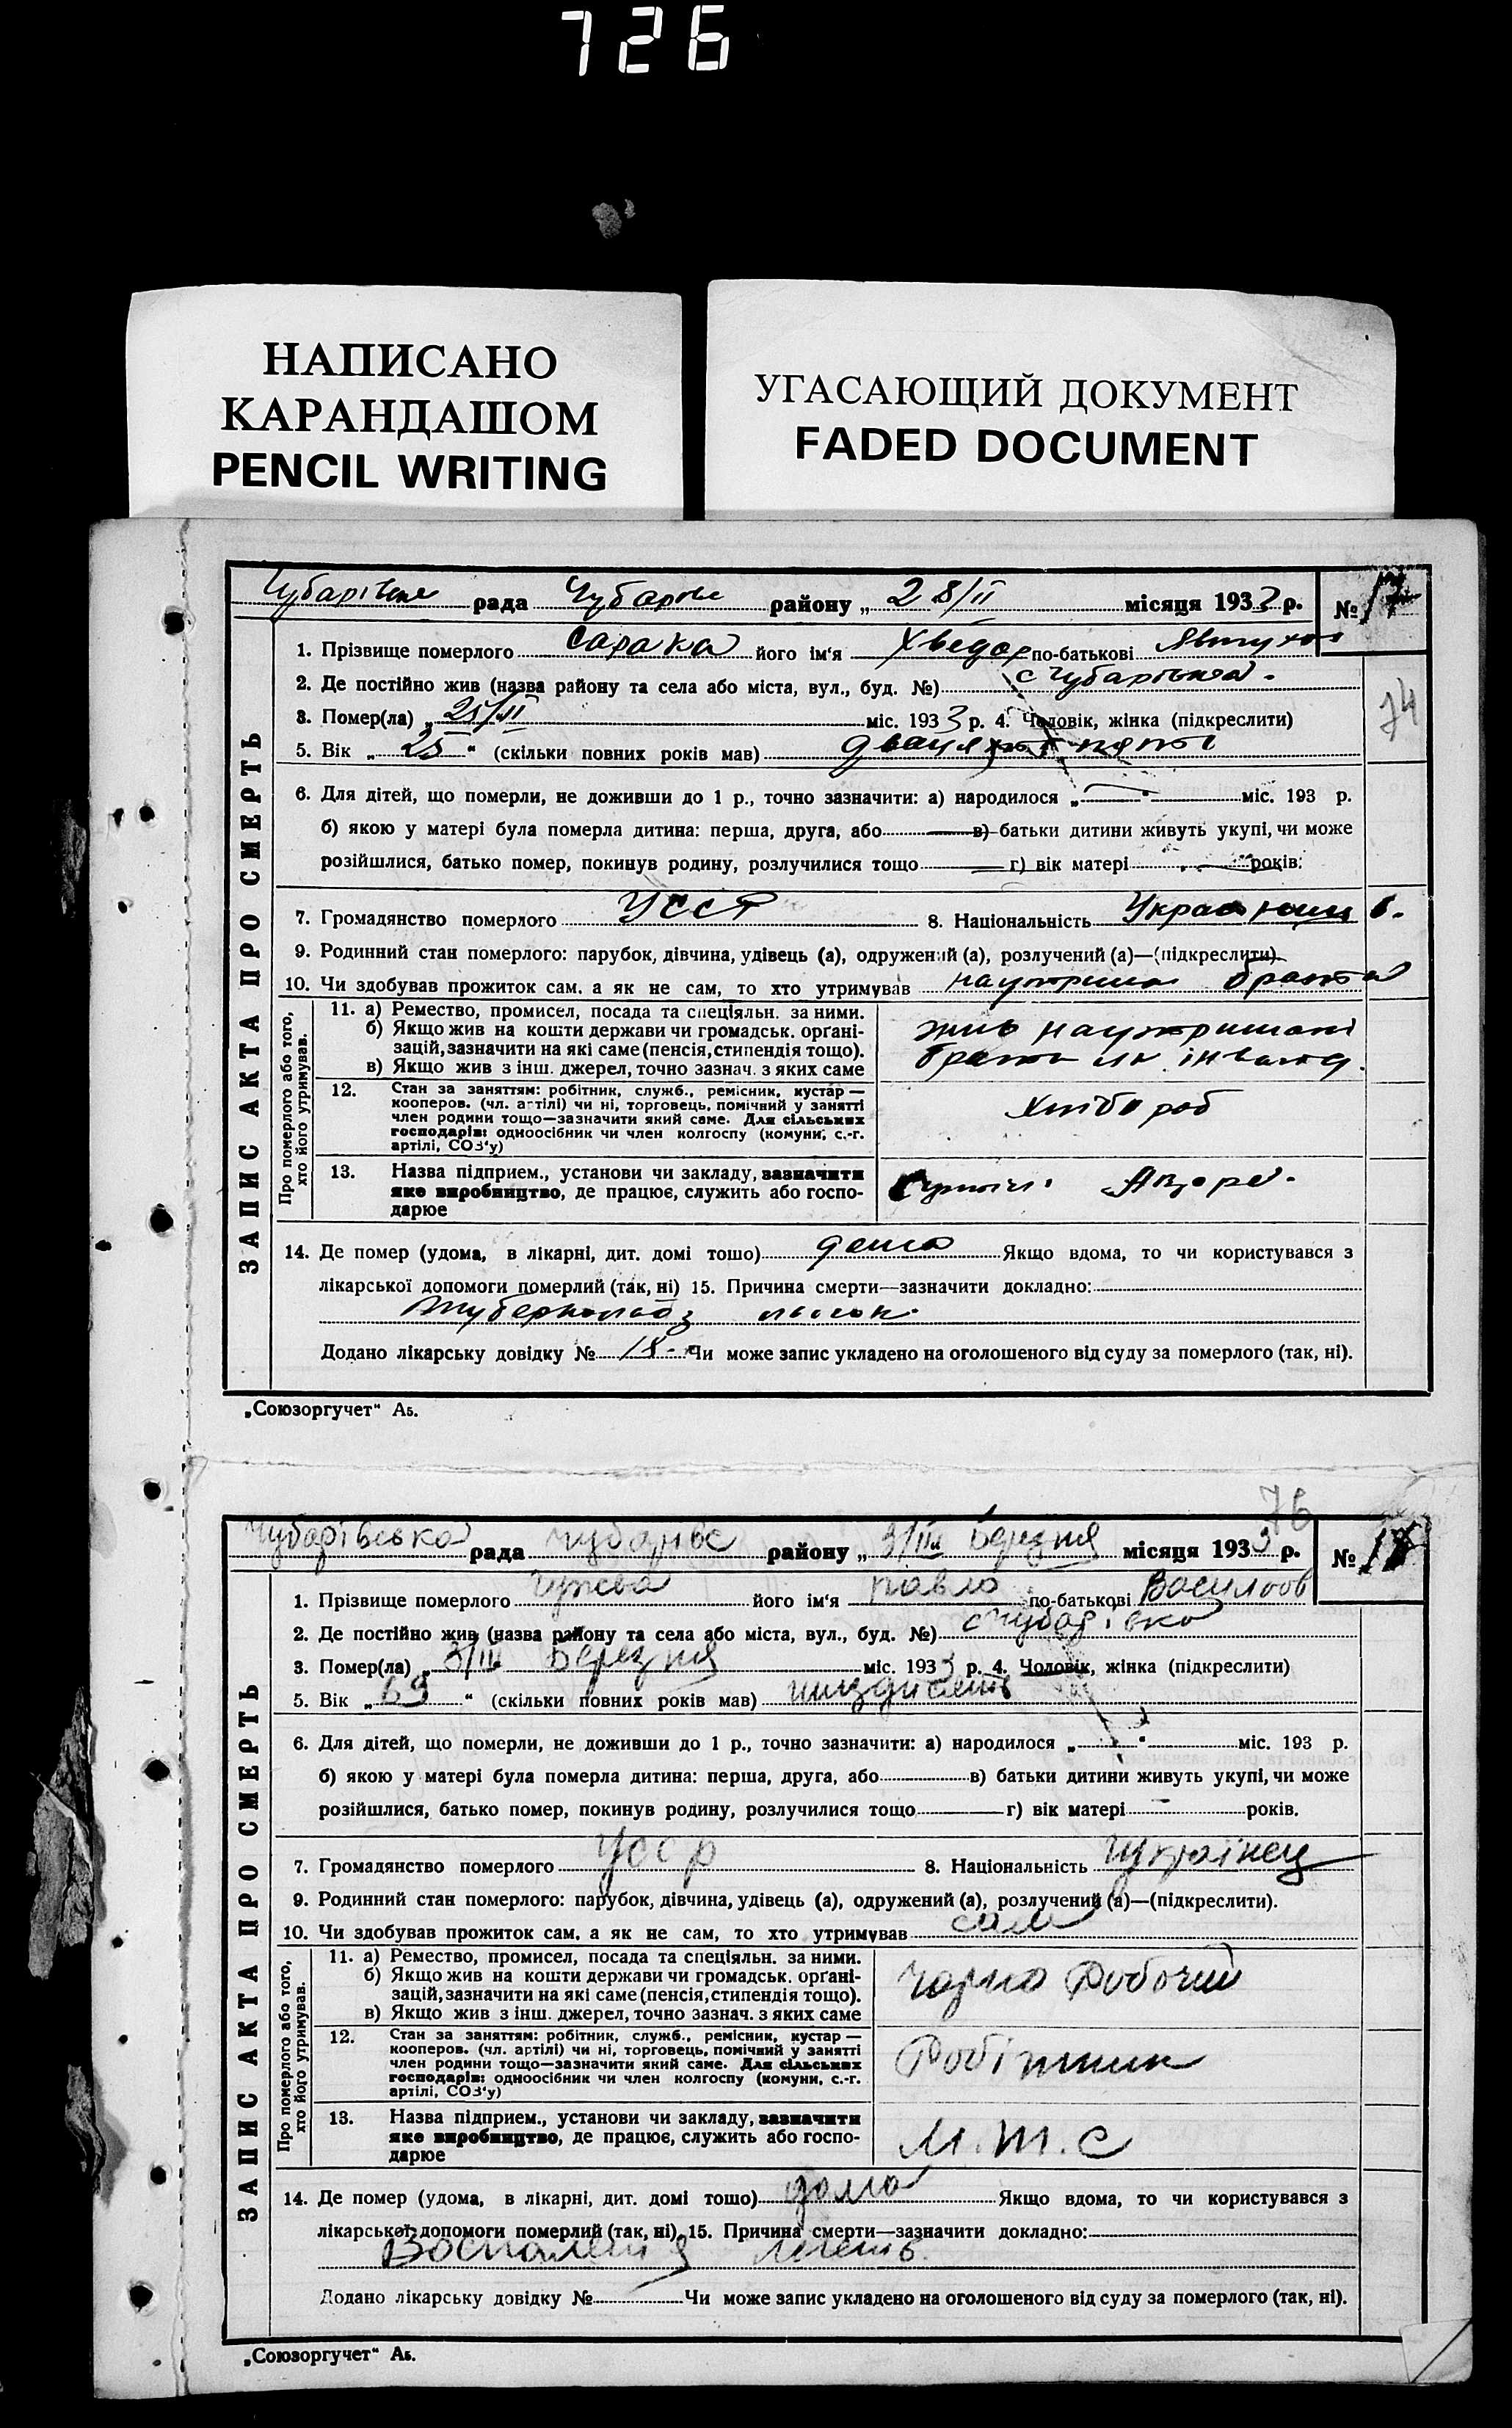 726
НАПИСАНО
КАРАНДАШОМ
PENCIL WRITING
УГАСАЮЩИЙ ДОКУМЕНТ
FADED DOCUMENT
рада району „ 28/II місяця 1933 р. № 17
1. Прізвище померлого його ім'я Хведор по-батькові
2. Де постійно жив (назва району та села або міста, вул., буд. №)
74
3. Помер(ла) „ 25/II міс. 1933 р. 4. Чоловік, жінка (підкреслити)
5. Вік „ 25 “ (скільки повних років мав)
6. Для дітей, що померли, не доживши до 1 р., точно зазначити: а) народилося „ “ міс. 193 р.
б) якою у матері була померла дитина: перша, друга, або в) батьки дитини живуть укупі, чи може
розійшлися, батько помер, покинув родину, розлучилися тощо г) вік матері років.
7. Громадянство померлого УССР 8. Національність
9. Родинний стан померлого: парубок, дівчина, удівець (а), одружений (а), розлучений (а)—(підкреслити)
10. Чи здобував прожиток сам. а як не сам, то хто утримував брата
ЗАПИС АКТА ПРО СМЕРТЬ
Про померлого або того,
хто його утримував.
11. а) Ремество, промисел, посада та спеціяльн. за ними.
б) Якщо жив на кошти держави чи громадськ. орґані-
зацій, зазначити на які саме (пенсія, стипендія тощо).
в) Якщо жив з інш. джерел, точно зазнач. з яких саме
12. Стан за заняттям: робітник, служб., ремісник, кустар —
кооперов. (чл. артілі) чи ні, торговець, помічний у занятті
член родини тощо—зазначити який саме. Для сільських
господарів: одноосібник чи член колгоспу (комуни, с.-г.
артілі, СОЗ'у)
Хлібороб
13. Назва підприєм., установи чи закладу, зазначити
яке виробництво, де працює, служить або госпо-
дарює
14. Де помер (удома, в лікарні, дит. домі тошо) дома Якщо вдома, то чи користувався з
лікарської допомоги померлий (так, ні) 15. Причина смерти—зазначити докладно:
Додано лікарську довідку № 18 Чи може запис укладено на оголошеного від суду за померлого (так, ні).
„Союзоргучет“ А5.
76
Чубарівська рада району „ 3/III Березня місяця 1933 р. № 18
1. Прізвище померлого його ім'я Павло по-батькові
2. Де постійно жив (назва району та села або міста, вул., буд. №) с Чубарівка
3. Помер(ла) „ 3/III Березня міс. 1933 р. 4. Чоловік, жінка (підкреслити)
5. Вік „ 69 “ (скільки повних років мав)
6. Для дітей, що померли, не доживши до 1 р., точно зазначити: а) народилося „ “ міс. 193 р.
б) якою у матері була померла дитина: перша, друга, або в) батьки дитини живуть укупі, чи може
розійшлися, батько помер, покинув родину, розлучилися тощо г) вік матері років.
7. Громадянство померлого УССР 8. Національність Українец
9. Родинний стан померлого: парубок, дівчина, удівець (а), одружений (а), розлучений (а)—(підкреслити).
10. Чи здобував прожиток сам. а як не сам, то хто утримував сам
ЗАПИС АКТА ПРО СМЕРТЬ
Про померлого або того,
хто його утримував.
11. а) Ремество, промисел, посада та спеціяльн. за ними.
б) Якщо жив на кошти держави чи громадськ. орґані-
зацій, зазначити на які саме (пенсія, стипендія тощо).
в) Якщо жив з інш. джерел, точно зазнач. з яких саме
Чорно Робочий
12. Стан за заняттям: робітник, служб., ремісник, кустар —
кооперов. (чл. артілі) чи ні, торговець, помічний у занятті
член родини тощо—зазначити який саме. Для сільських
господарів: одноосібник чи член колгоспу (комуни, с.-г.
артілі, СОЗ'у)
Робітник
13. Назва підприєм., установи чи закладу, зазначити
яке виробництво, де працює, служить або госпо-
дарює
М.Т.С
14. Де помер (удома, в лікарні, дит. домі тошо) дома Якщо вдома, то чи користувався з
лікарської допомоги померлий (так, ні), 15. Причина смерти—зазначити докладно:
Воспаления легень
Додано лікарську довідку № Чи може запис укладено на оголошеного від суду за померлого (так, ні).
„Союзоргучет“ А5.